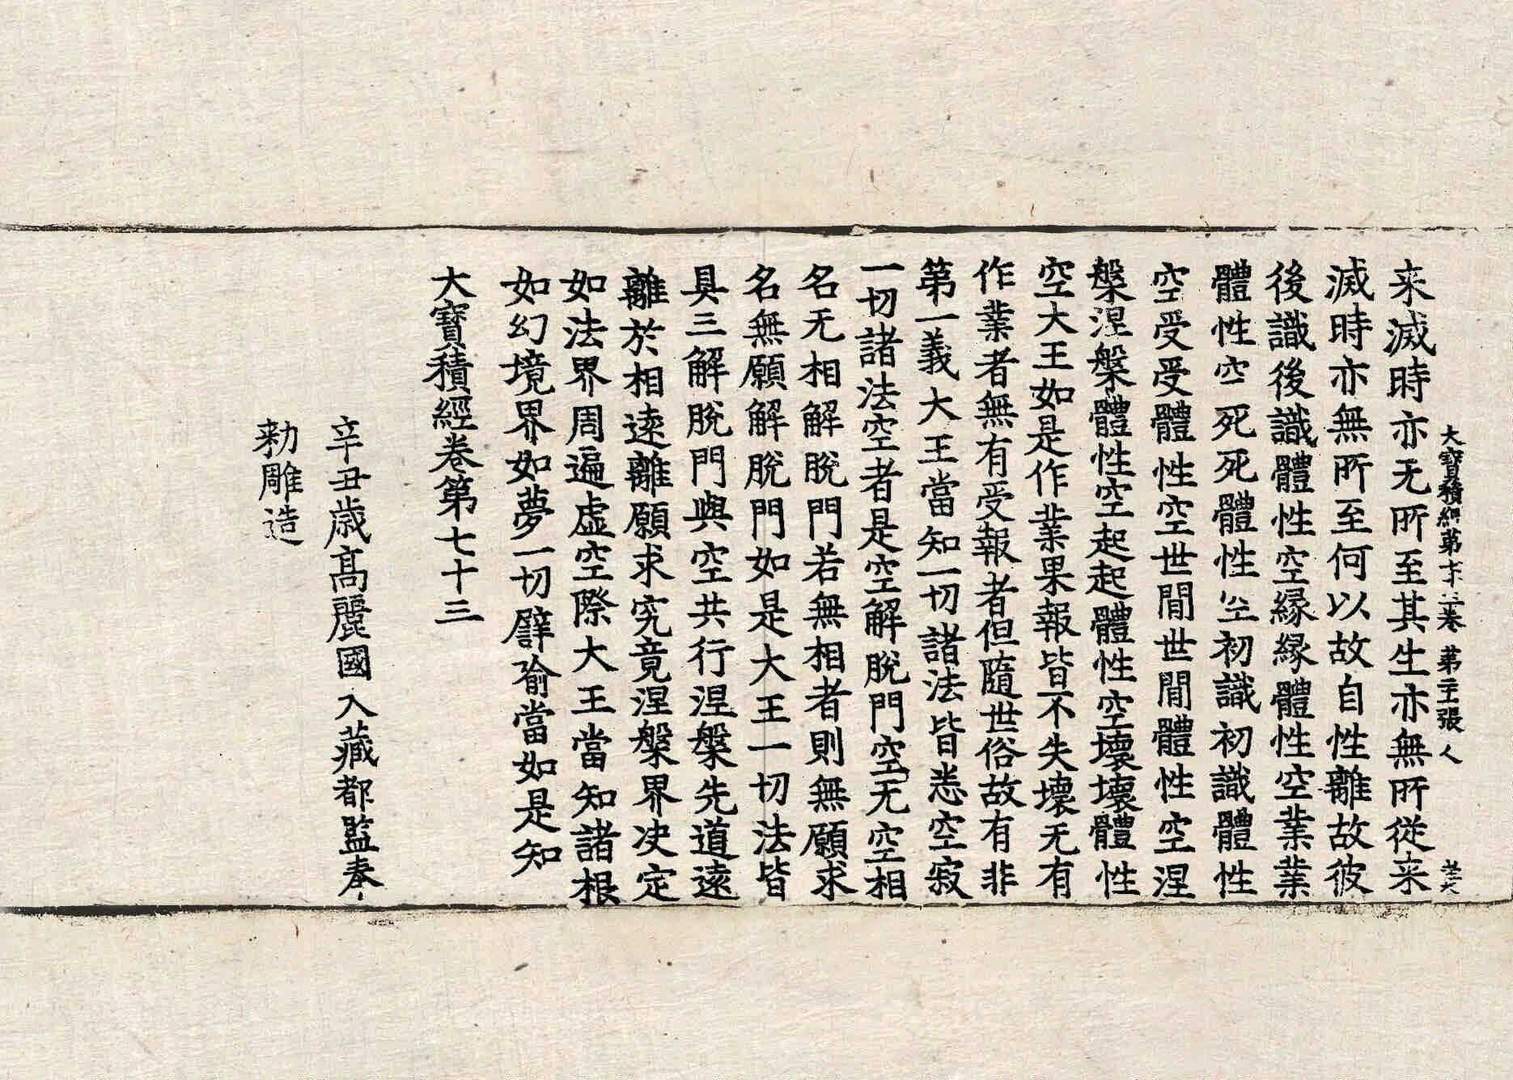 大寶積經第七十三卷 第二十張 人
来滅時亦无所至其生亦無所從来
滅時亦無所至何以故自性離故彼
後識後識體性空緣緣體性空業業
體性空死死體性空初識初識體性
空受受體性空世間世間體性空涅
槃涅槃體性空起起體性空壞壞體性
空大王如是作業果報皆不失壞无有
作業者無有受報者但隨世俗故有非
第一義大王當知一切諸法皆悉空寂
一切諸法空者是空解脫門空无空相
名无相解脫門若無相者則無願求
名無願解脫門如是大王一切法皆
具三解脫門與空共行涅槃先道遠
離於相遠離願求究竟涅槃界决定
如法界周遍虛空際大王當知諸根
如幻境界如夢一切譬喻當如是知
大寶積經卷第七十三
辛丑歲高麗國大藏都監奉
勑雕造